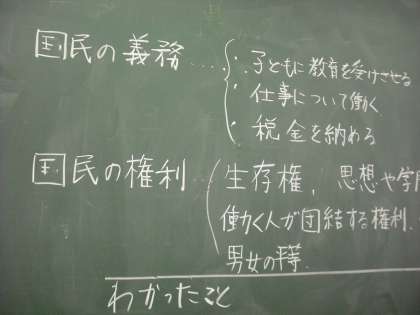 国民の義務……
・子どもに教育を受けさせる
・仕事について働く
・税金を納める
国民の権利…
生存権、思想や学
働く人が団結する権利.
男女の平等.
わかったこと